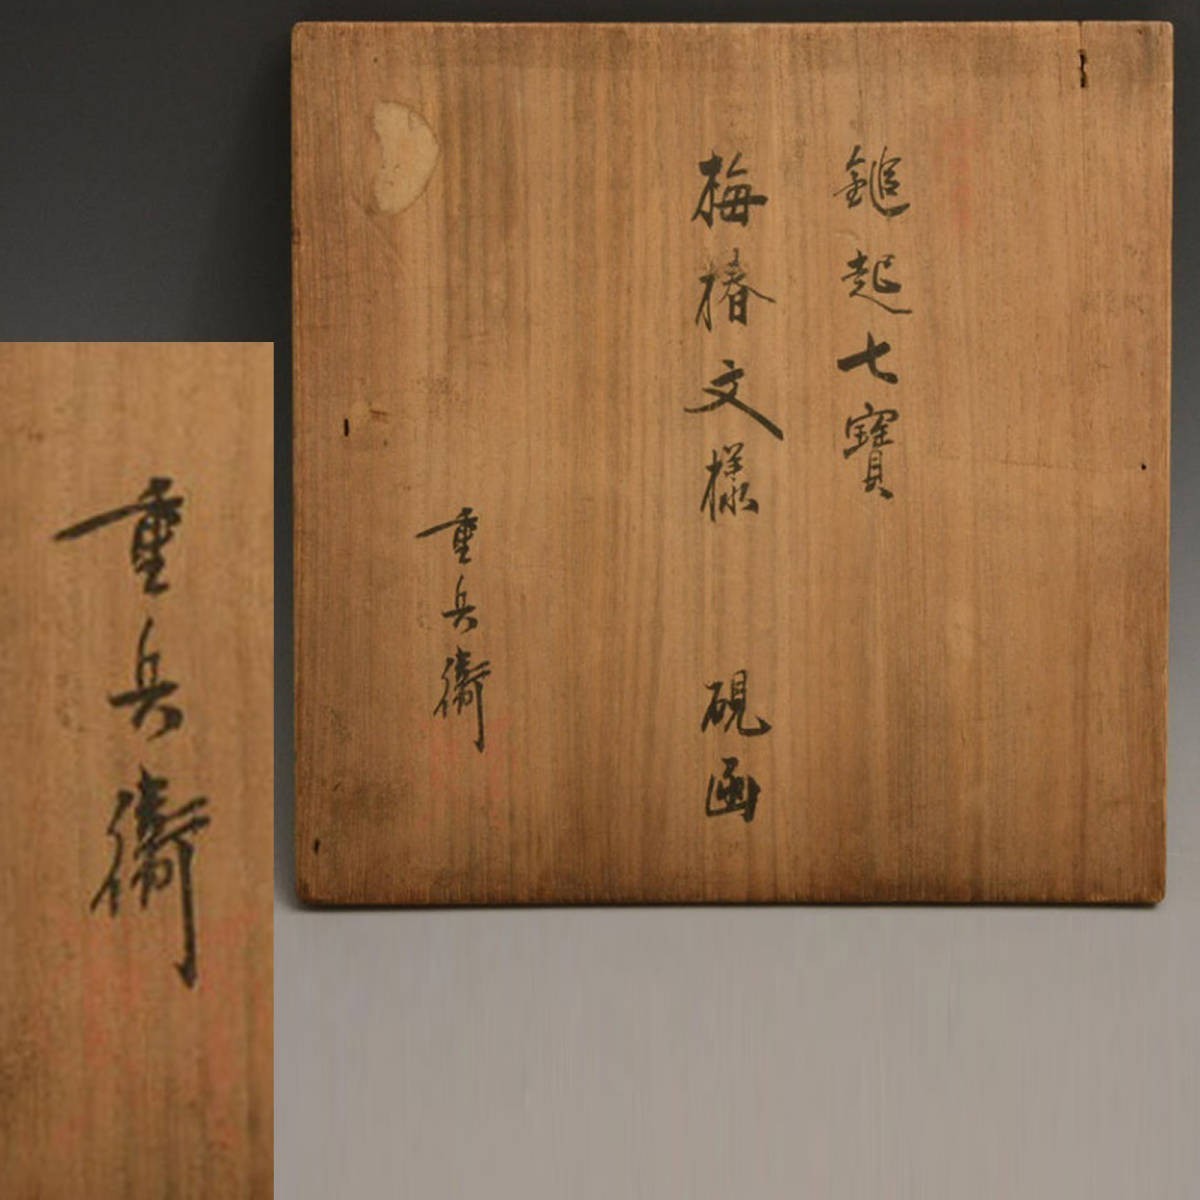 鎚起七寳
梅椿文様 硯函
重兵衛
重兵衛